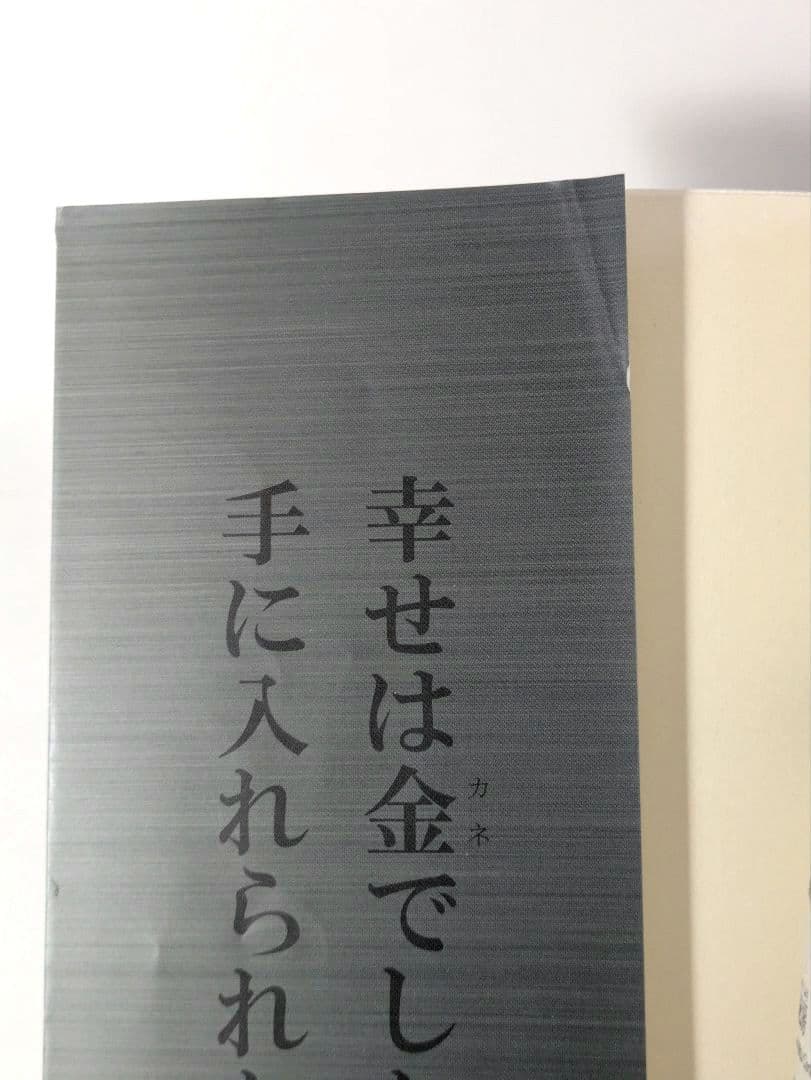 幸せは金でし
カネ
手に入れられ